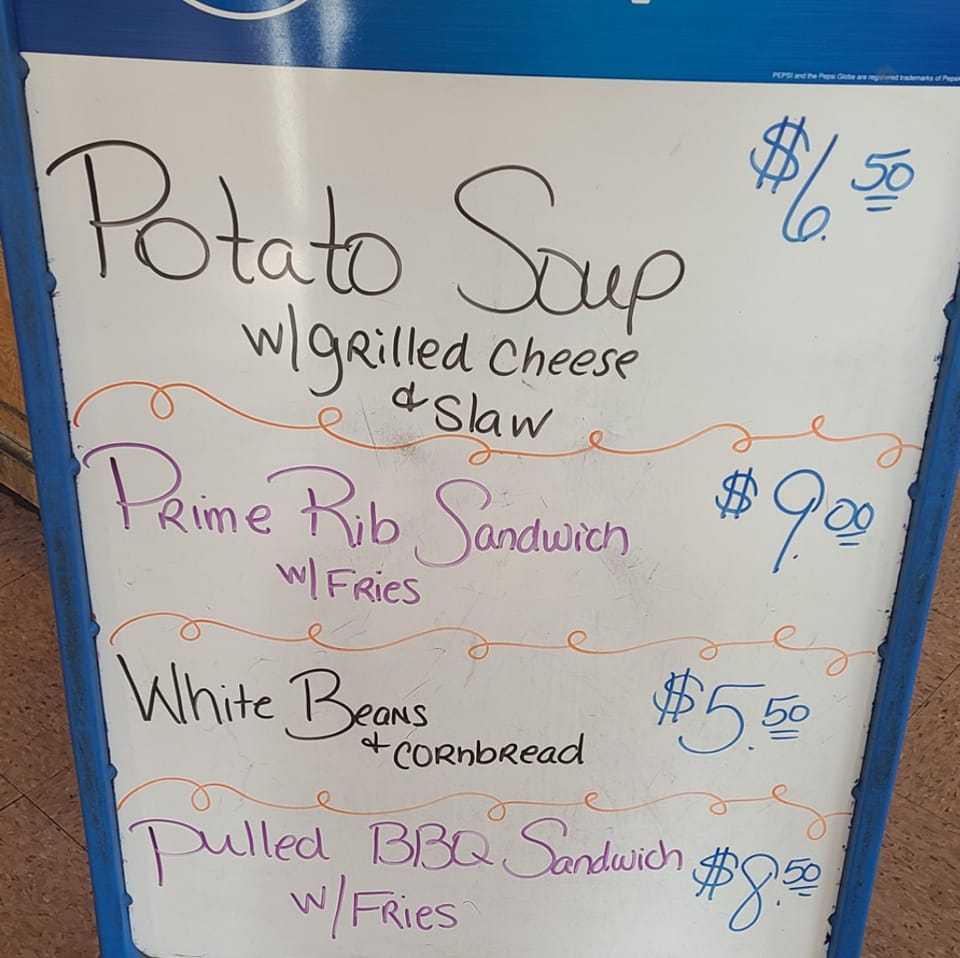 PEPSI and the Pepsi Globe are registered trademarks of Pepsi
Potato Soup $6.50
w/grilled Cheese
& Slaw
Prime Rib Sandwich $9.00
w/Fries
White Beans $5.50
& cornbread
Pulled BBQ Sandwich $8.50
w/Fries